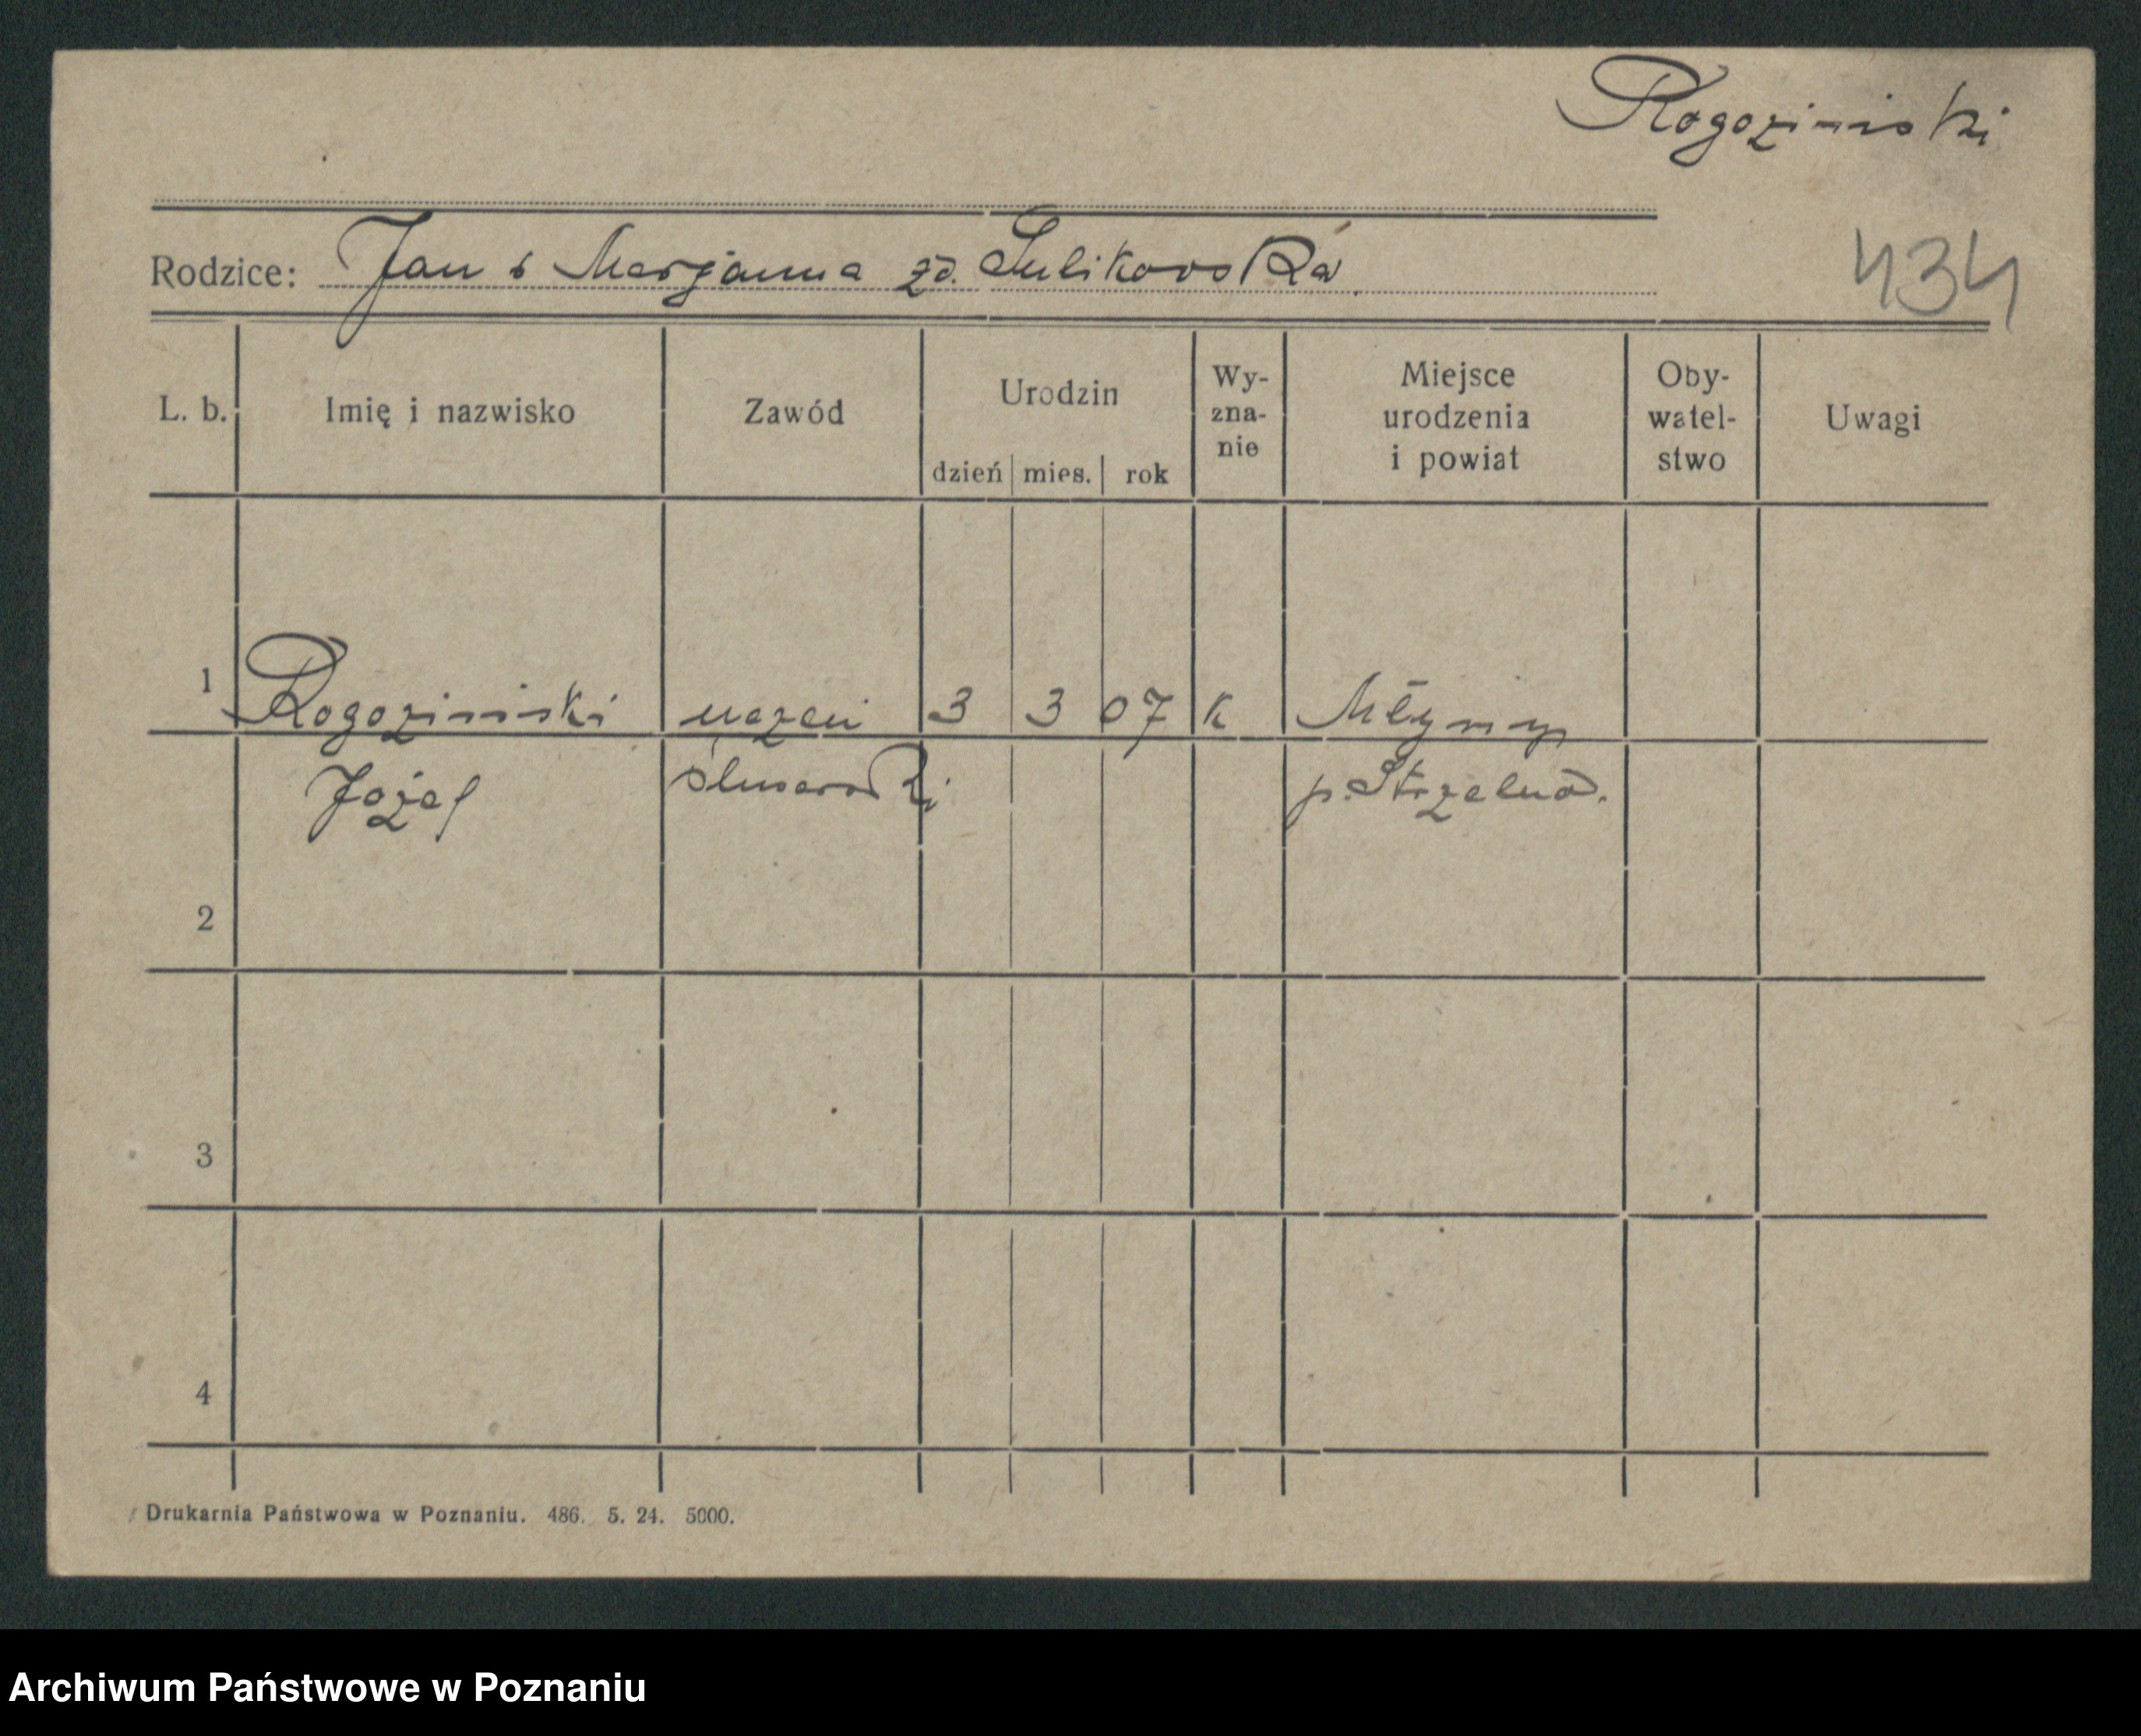 Rogoziński
434
Rodzice: Jan & Marjanna zd. Sulikowska
L. b. Imię i nazwisko Zawód Urodzin dzień mies. rok Wy-zna-nie Miejsce urodzenia i powiat Oby-watel-stwo Uwagi
1 Rogoziński uczeń 3 3 07 K Młyny
Józef ślusarski p. Strzelno.
2
3
4
Drukarnia Państwowa w Poznaniu. 486. 5. 24. 5000.
Archiwum Państwowe w Poznaniu